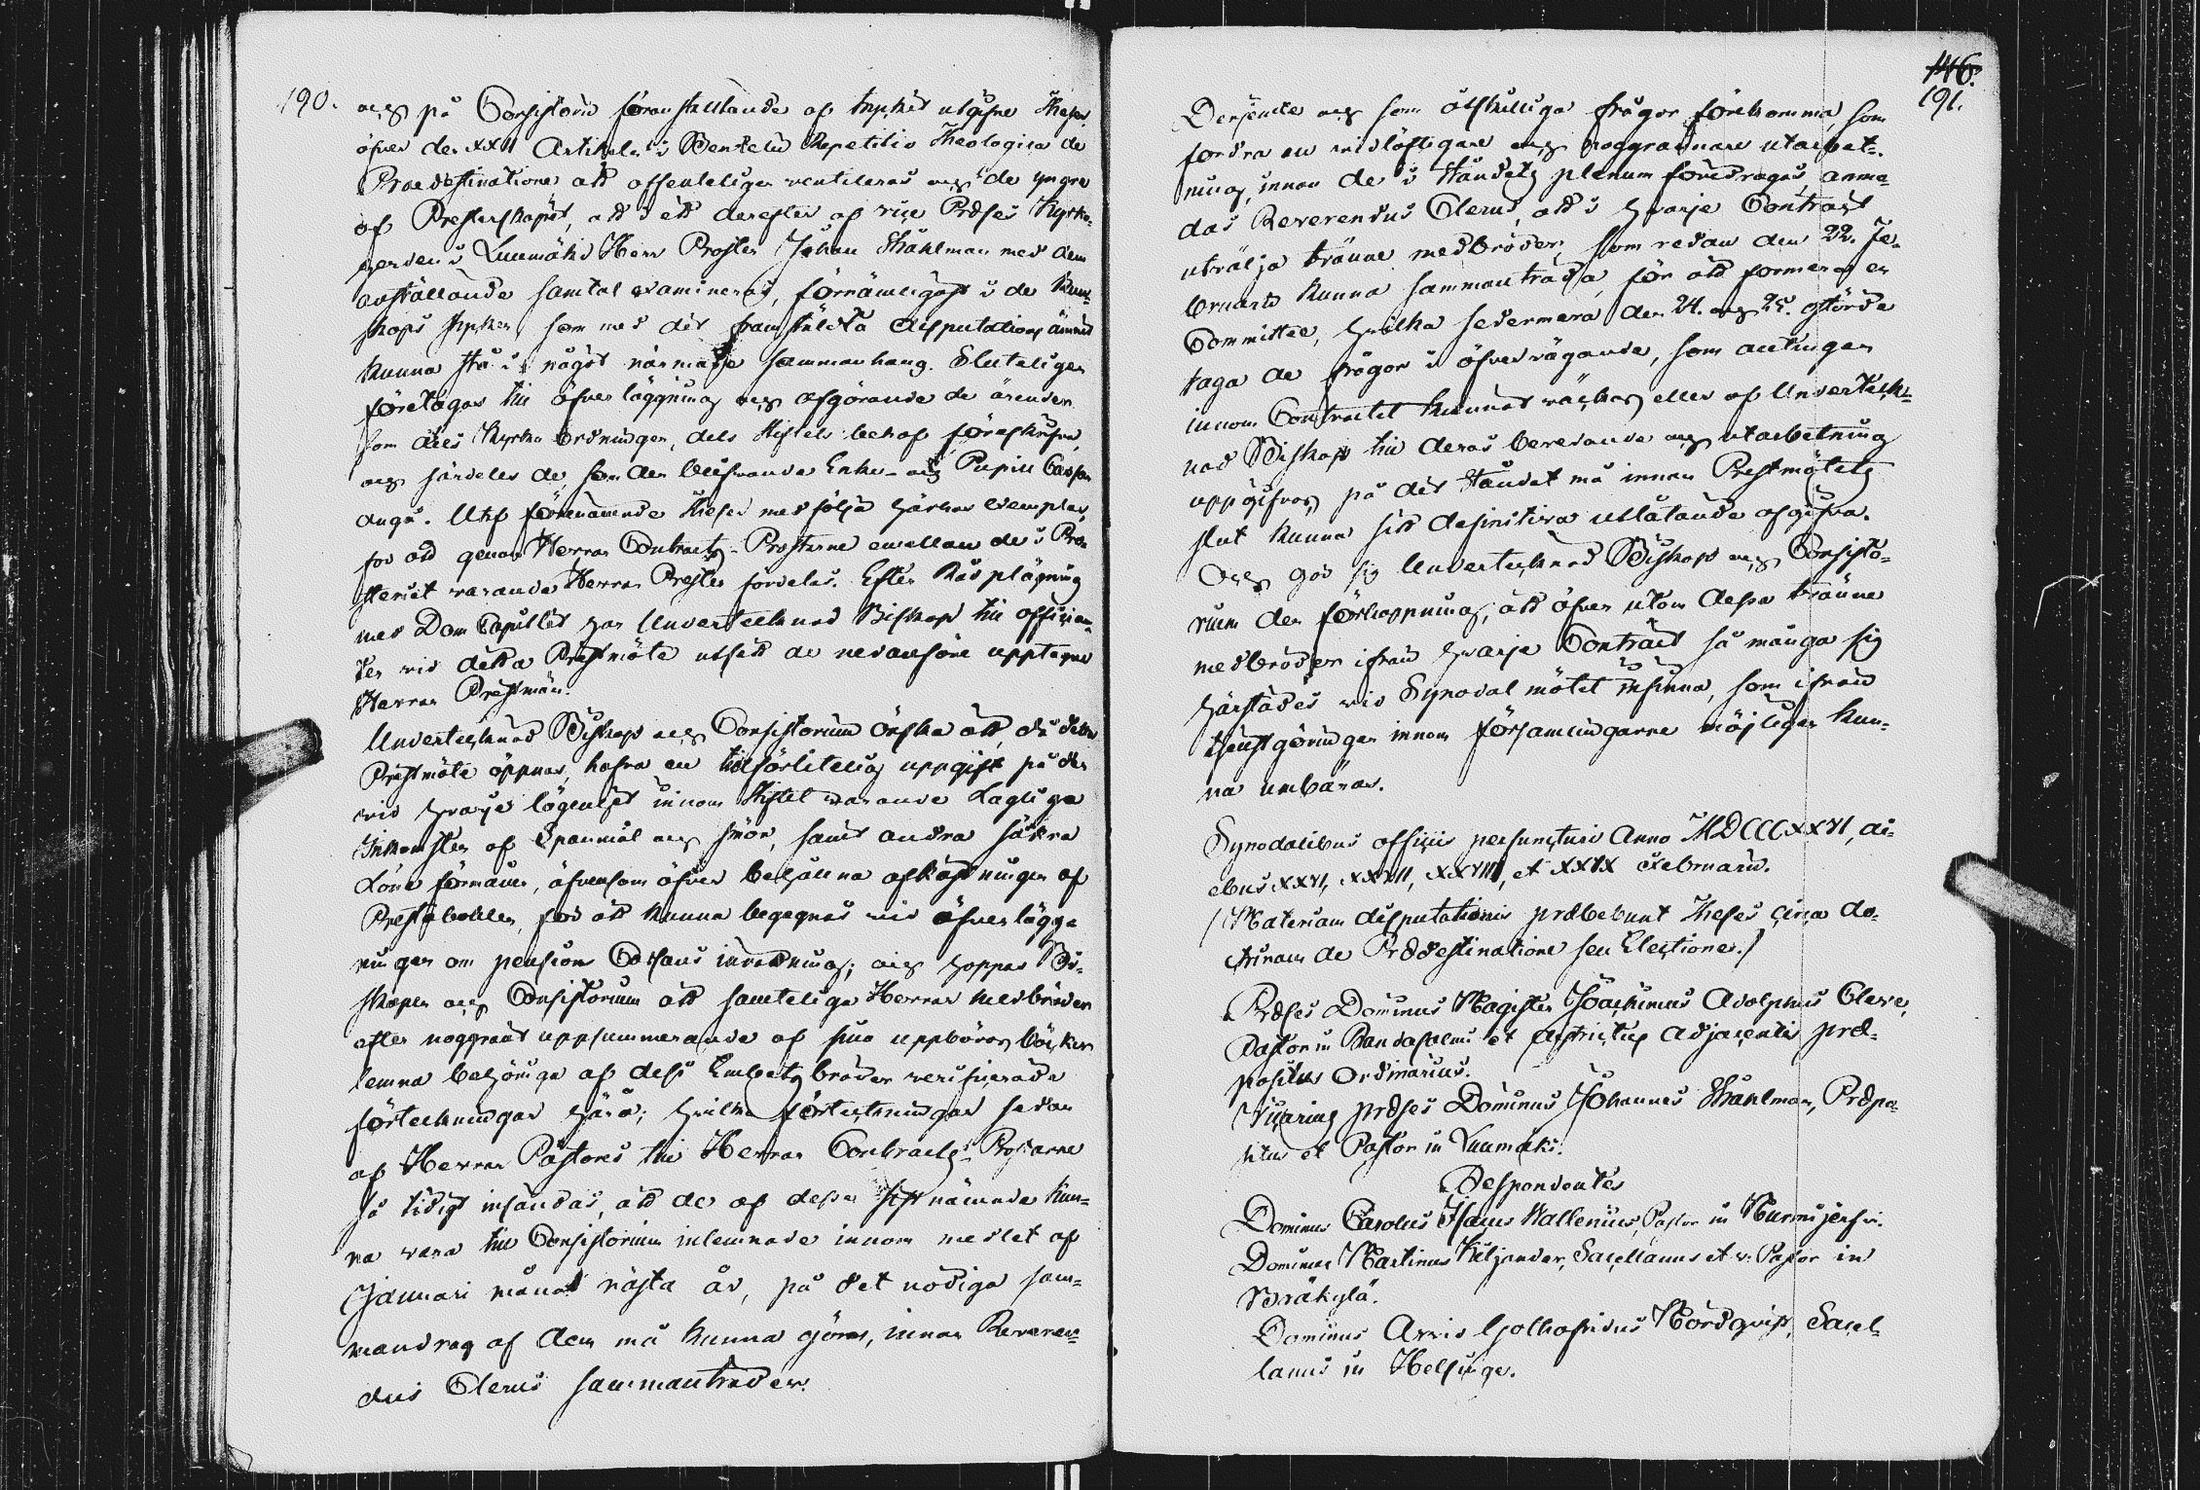 190.
och på Consistorii föranstaltande af trycket utgifne Theser
öfver den XXII Artikeln i Benzelii Repetitio Theologica de
Praedestinatione att offenteligen ventileras och de yngre
af Presterskapet, att i ett derefter af vice Præses Kyrko-
herden i Luumäki Herr Prosten Johan Ståhlman med dem
anställande samtal examineras, förnämligast i de kun-
skaps stycken, som med det framstälda disputations ämnet
kunna stå i något närmare sammanhang. Sluteligen
företagas till öfverläggning och afgörande de ärenden
som dels Kyrko Ordningen, dels Stiftets behof föreskrifva,
och särdeles de, som den blifvande Enke- och Pupill Cassan
angå. Utaf förenämnde Theser medfölja härhos exemplar,
for att genom Herrar Contracts-Prostarne emellan de i Pro-
steriet varande Herrar Prester fördelas. Efter Rådplägning
med Dom Capitlet har Undertecknad Biskop till offician-
ter vid detta Prestmöte utsett de nedanföre upptagne
Herrar Prestmän.
Undertecknad Biskop och Consistorium önska att, då detta
Prestmöte öppnas, hafva en tillförlitelig uppgift på de
vid hvarje lägenhet innom Stiftet varande Laglige
Inkomster af Spanmål och smör, samt andra säkra
Löne förmåner, äfvensom öfver behållna afkastningen af
Prestabohlen, för att kunna begagnas vid öfverlägg-
ningen om pensions Cassans inrättning; och hoppas Bi-
skopen och Consistorium att samtelige Herrar Medbröder
efter noggrant uppsummerande af sina uppbörds böcker
lemna behöriga af dess Embets bröder verificerade
förteckningar härå; hvilka förteckningar sedan
af Herrar Pastores till Herrar Contracts-Prostarne
så tidigt insändas, att de af desse sistnämnde kun-
na vara till Consistorium inlemnade innom medlet af
Januari månad nästa år, på det nödiga sam-
mandrag af dem må kunna göras, innan Reveren-
dus Clerus sammanträder.
146.
191.
Dersjemte och som åtskilliga frågor förekomma, som
fordra en vidlöftigare och noggrannare utarbet-
ning, innan de i Ståndets plenum föredragas anmo-
das Reverendus Clerus, att i hvarje Contract
utvälja tränne medbröder, som redan den 22. Fe-
bruarii kunna sammanträda, för att formera en
Committée, hvilka sedermera den 24. och 25. ostörde
taga de frågor i öfvervägande, som antingen
innom Contractet kunnat väckas, eller af Underteck-
nad Biskop till deras beredande och utarbetning
uppgifvas, på det Ståndet må innan Prestmötets
slut kunna sitt definitiva utlåtande afgifva.
Och gör sig Undertecknad Biskop och Consisto-
rium den förhoppning, att äfven utom dessa tränne
medbröder ifrån hvarje Contract så många sig
härstädes vid Synodal mötet infinna, som ifrån
tjenstgöringen innom församlingarne möjligen kun-
na umbäras.
Synodalibus officiis perfuncturi Anno MDCCCXXVI, di-
ebus XXVI, XXVII, XXVIII, et XXIX Februarii.
/Materiam disputationis præbebunt Theses circa do-
ctrinam de Prædestinatione seu Electione./
Præses Dominus Magister Joachimus Adolphus Cleve,
Pastor in Randasalmi et districtus adjacentis præ-
positus Ordinarius.
Vicarius præses Dominus Johannes Ståhlman, Præpo-
situs et Pastor in Luumäki.
Respondentes
Dominus Carolus Isacus Wallenius, Pastor in Nurmijerfvi.
Dominus Martinus Kiljander, Sacellanus et v. Pastor in
Bräkylä.
Dominus Arvid Gothofridus Nordqvist, Sacel-
lanus in Helsinge.